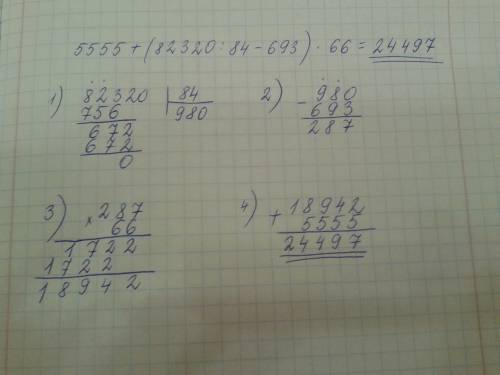 5555+(82320:84-693)·66=24497
1) 82320 84
756 980
672
672
0
2) - 980
693
287
3) × 287
66
1722
1722
18942
4) + 18942
5555
24497